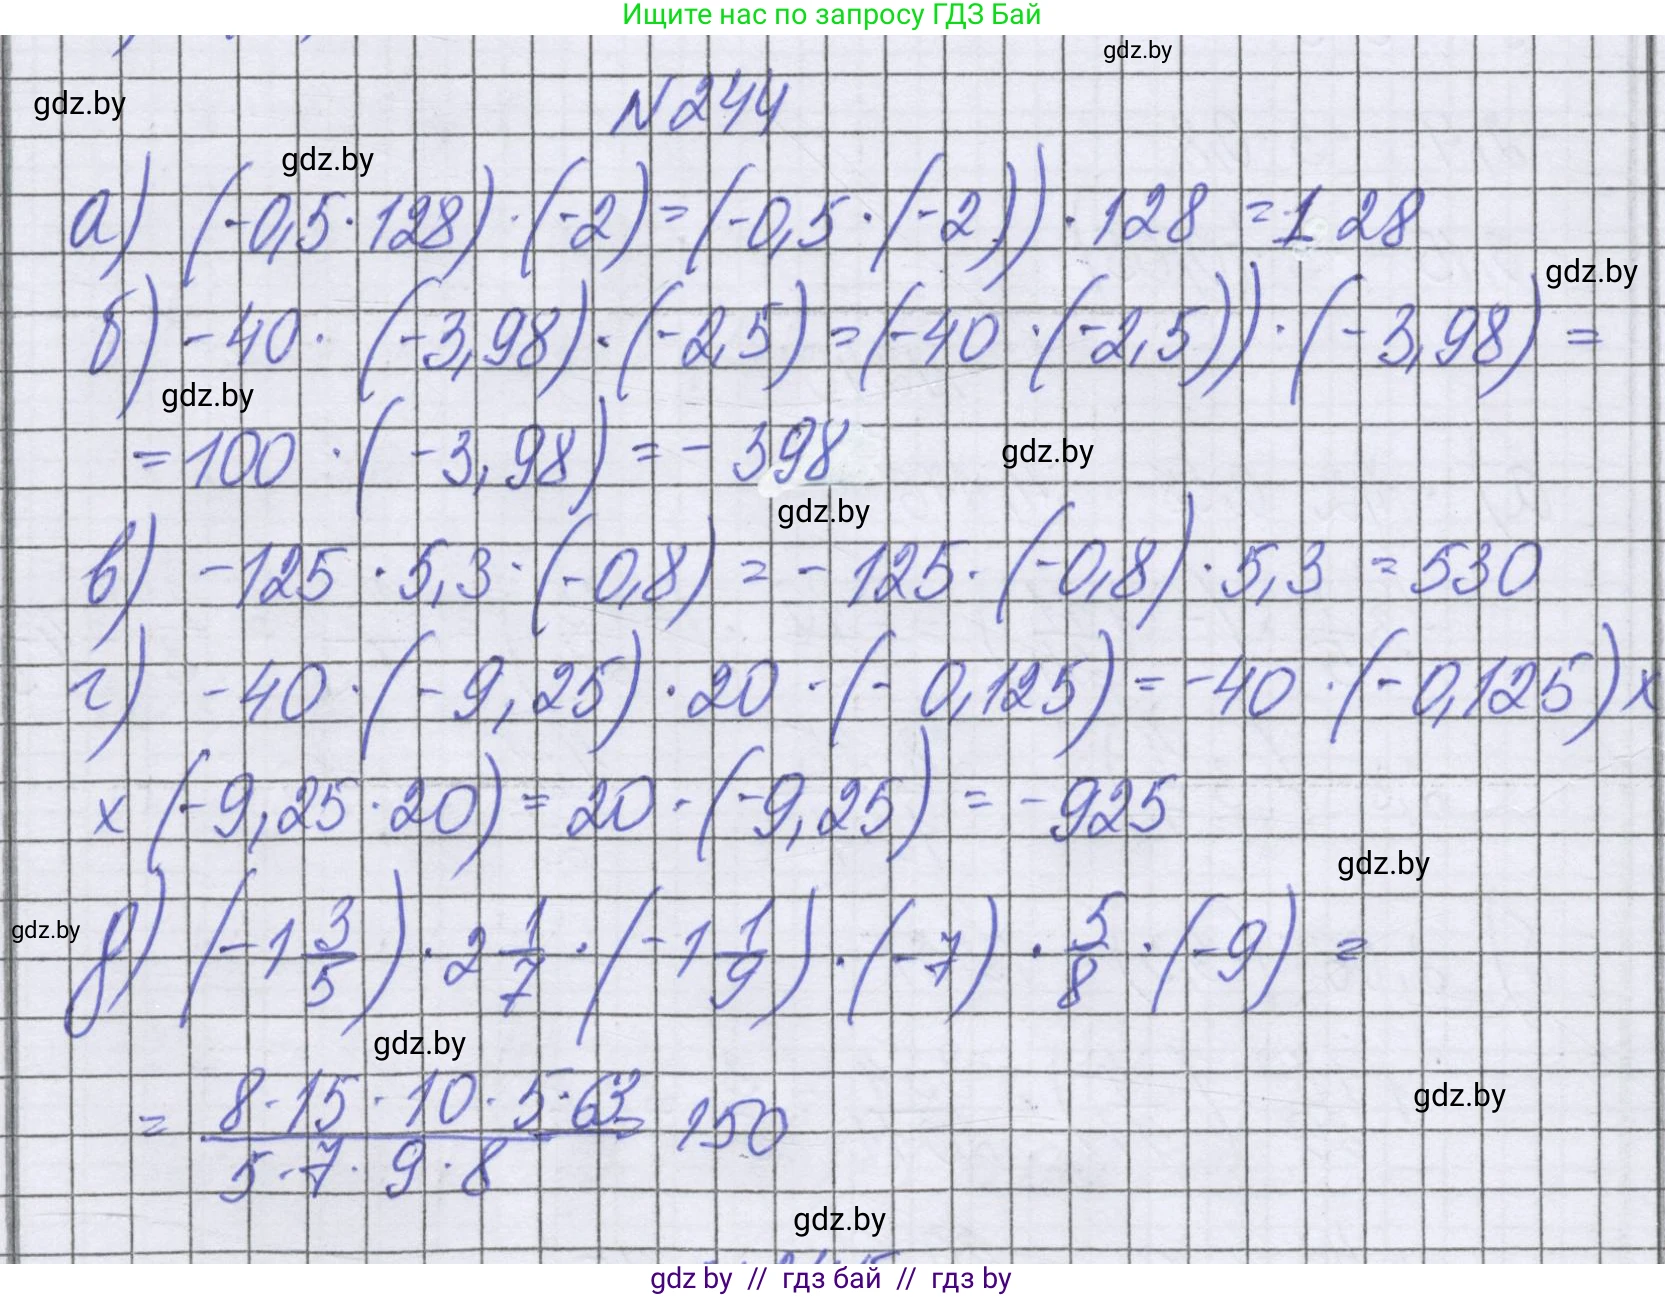 Ищите нас по запросу ГДЗ Бай
gdz.by
gdz.by
N244
gdz.by
а) (-0,5·128)·(-2)=(-0,5·(-2))·128=128
gdz.by
б) -40·(-3,98)·(-2,5)=(-40·(-2,5))·(-3,98)=
gdz.by
=100·(-3,98)=-398
gdz.by
gdz.by
в) -125·5,3·(-0,8)=-125·(-0,8)·5,3=530
г) -40·(-9,25)·20·(-0,125)=-40·(-0,125)х
х(-9,25·20)=20·(-9,25)=-925
gdz.by
gdz.by
д) (-1 3/5)·2 1/7·(-1 1/9)·(-7)·5/8·(-9)=
gdz.by
gdz.by
= 8·15·10·5·63 / 5·7·9·8 = 150
gdz.by
gdz by // гдз бай // гдз by